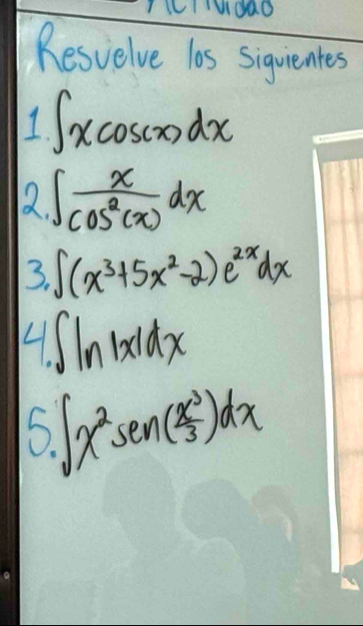 Actividad
Resuelve los siguientes
1. ∫x cos(x) dx
2. ∫ x/cos²(x) dx
3. ∫(x³+5x²-2) e²ˣ dx
4. ∫ln |x| dx
5. ∫x² sen(x³/3) dx